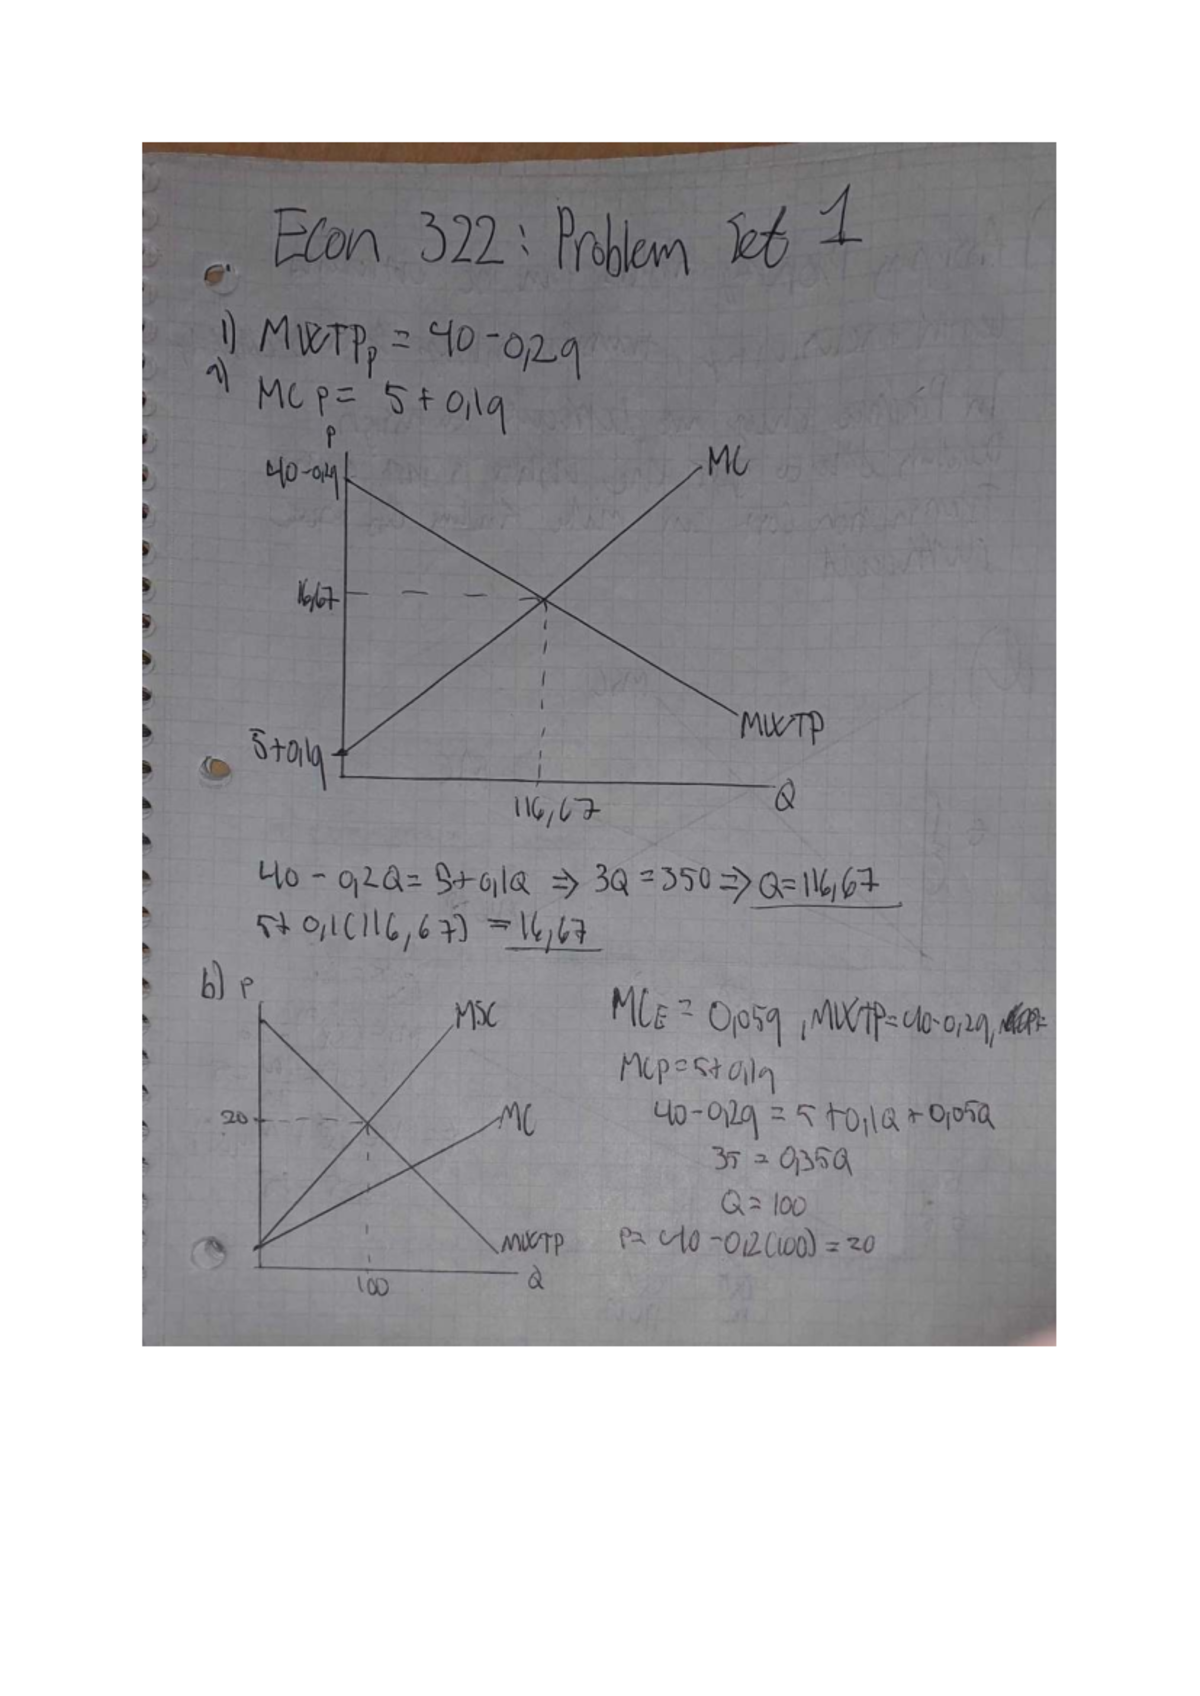 Econ 322: Problem Set 1
1) MWTPp = 40-0,2q
a) MCp = 5+0,1q
P
40-0,2q
MC
16,67
5+0,1q
MWTP
116,67
Q
40-0,2Q=5+0,1Q ⇒ 3Q=350 ⇒ Q=116,67
5+0,1(116,67) = 16,67
b) P
MSC
MC
20
MWTP
100
Q
MCE = 0,05q, MWTP=40-0,2q,
MCp=5+0,1q
40-0,2q = 5+0,1Q+0,05Q
35 = 0,35Q
Q=100
P= 40-0,2(100) = 20